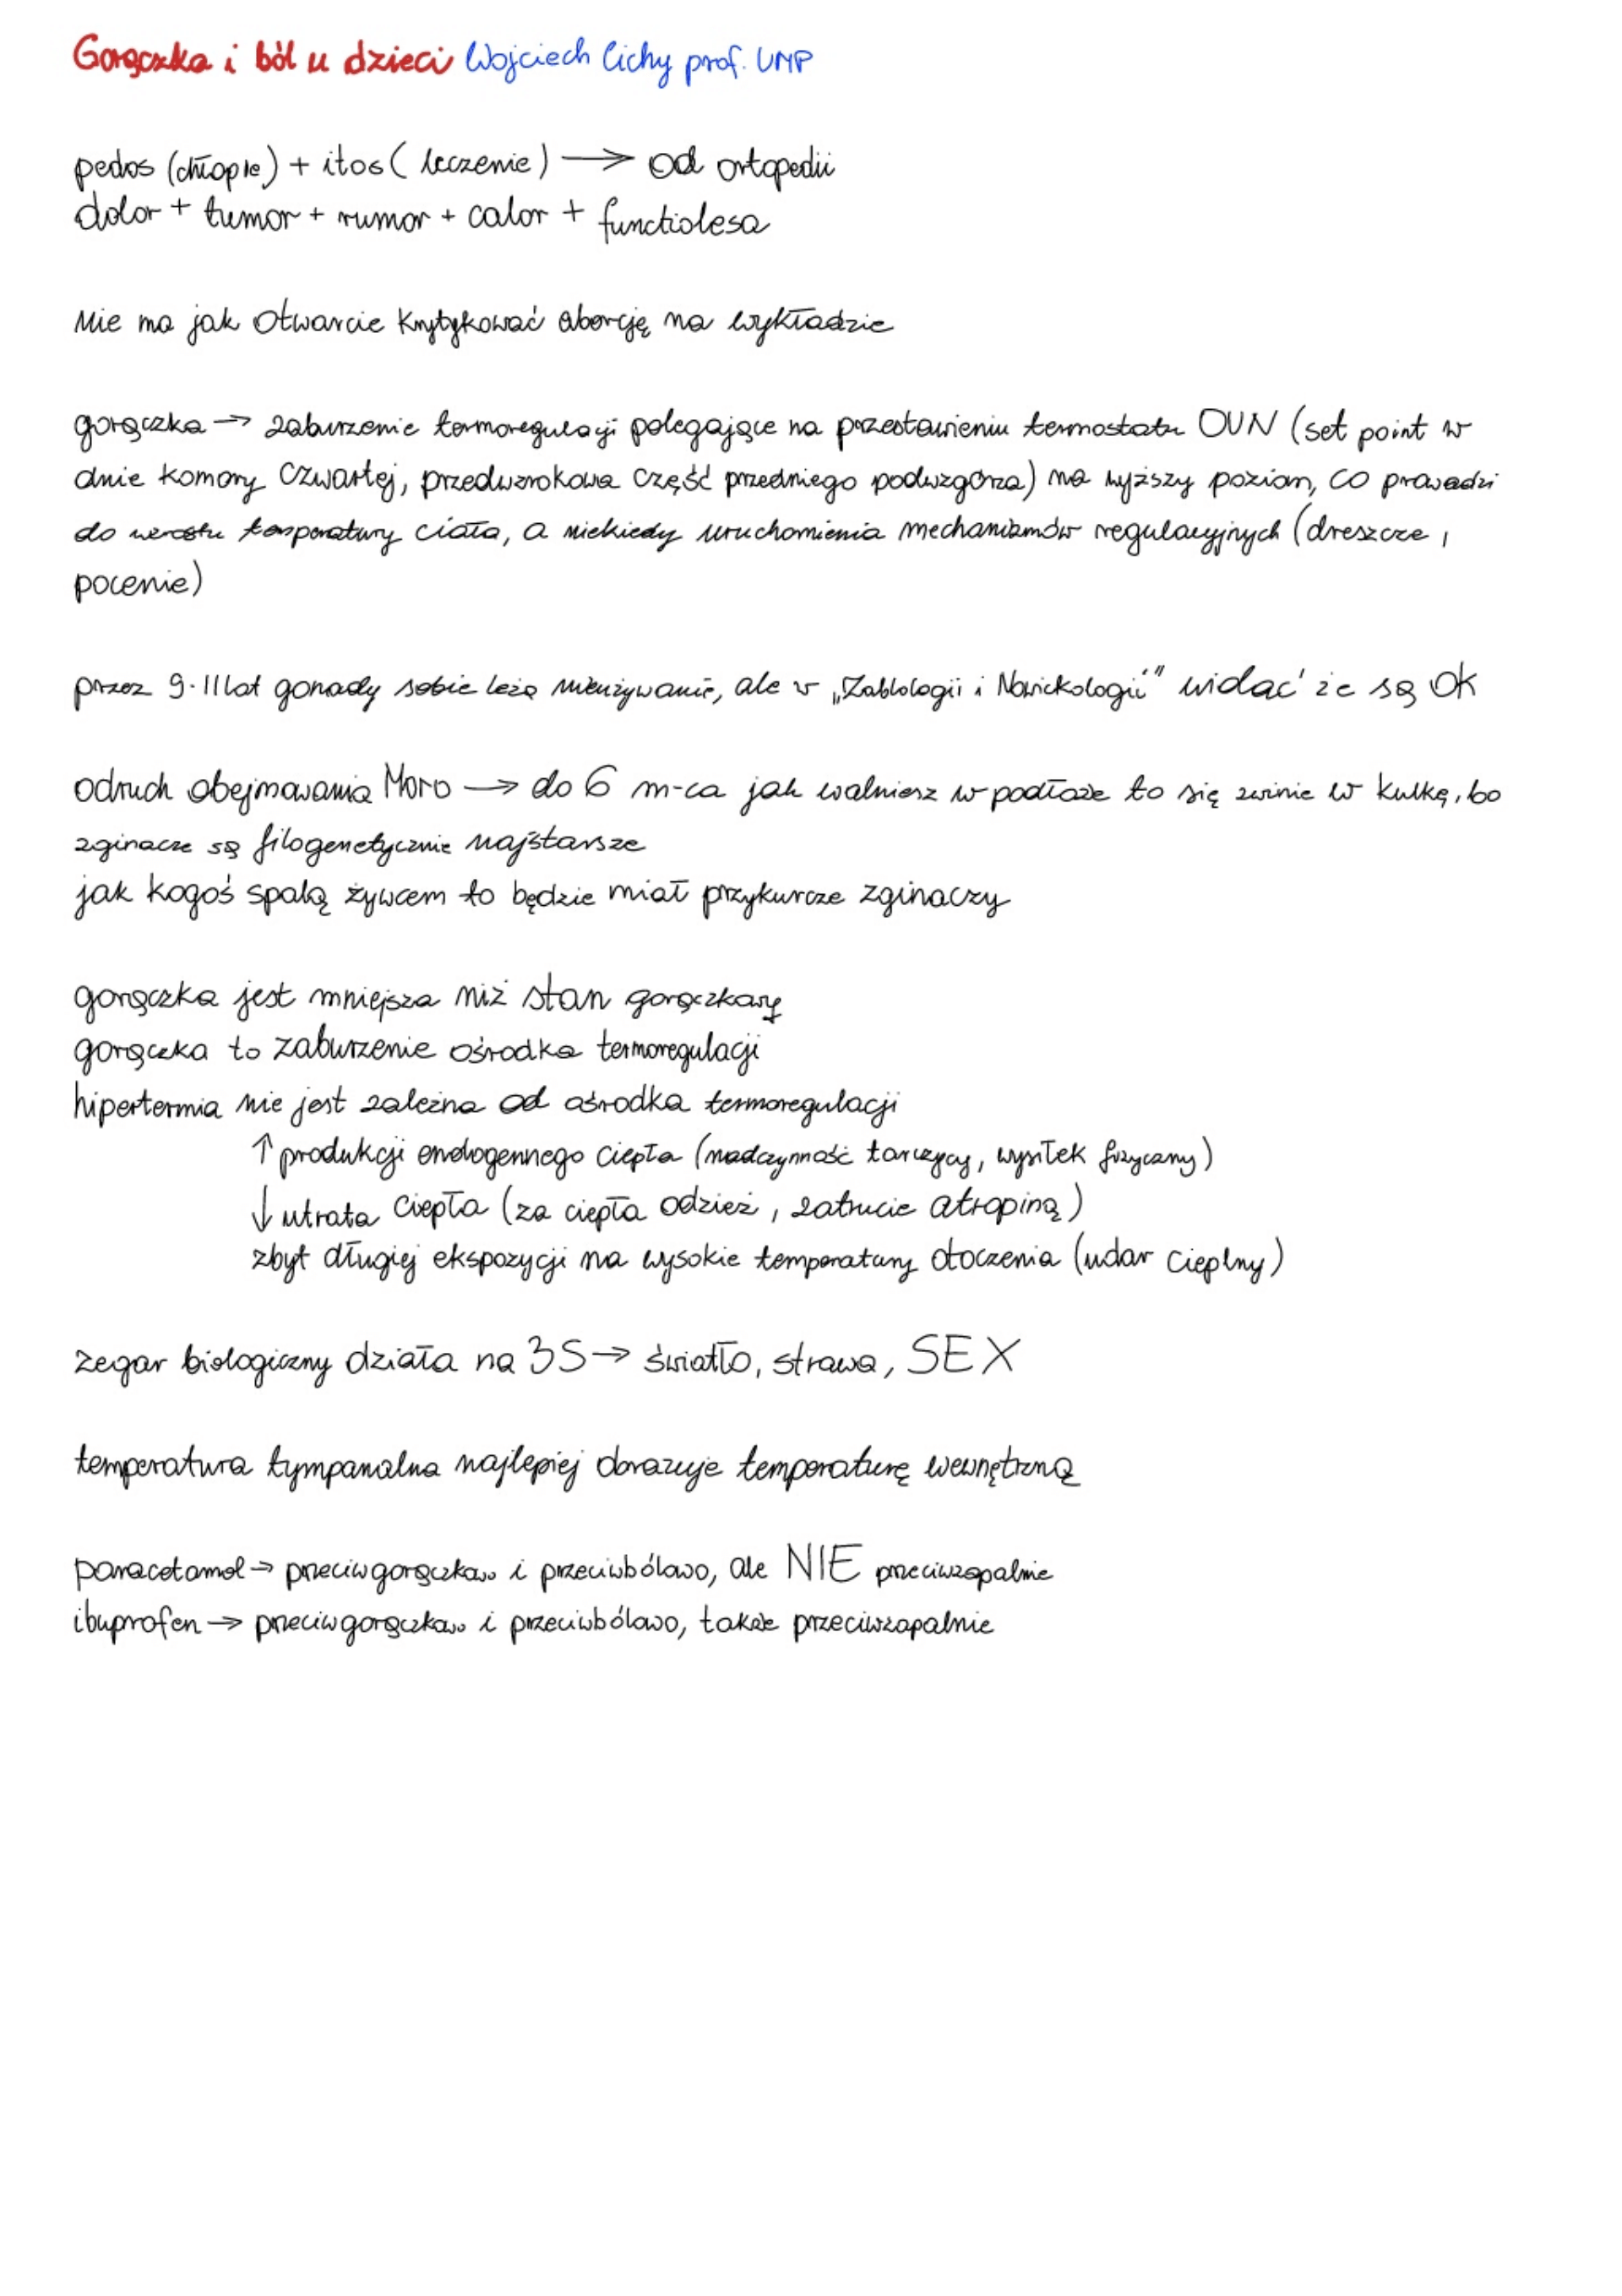 Gorączka i ból u dzieci Wojciech Cichy prof. UMP
pedos (chłopie) + itos ( leczenie ) → od ortopedii
dolor + tumor + rumor + calor + functiolesa
Nie ma jak otwarcie krytykować aborcję na wykładzie
gorączka → zaburzenie termoregulacji polegające na przestawieniu termostatu OUN (set point w
dnie komory czwartej, przedwzrokowa część przedniego podwzgórza) na wyższy poziom, co prowadzi
do wzrostu temperatury ciała, a niekiedy uruchomienia mechanizmów regulacyjnych (dreszcze,
pocenie)
przez 9-11 lat gonady sobie leżą nieużywanie, ale w „Zablologii i Nowickologii" widać że są ok
odruch obejmowania Moro → do 6 m-ca jak walniesz w podłoże to się zwinie w kulkę, bo
zginacze są filogenetycznie najstarsze
jak kogoś spalą żywcem to będzie miał przykurcze zginaczy
gorączka jest mniejsza niż stan gorączkowy
gorączka to zaburzenie ośrodka termoregulacji
hipertermia nie jest zależna od ośrodka termoregulacji
↑ produkcji endogennego ciepła (nadczynność tarczycy, wysiłek fizyczny)
↓ utrata ciepła (za ciepła odzież, zatrucie atropiną)
zbyt długiej ekspozycji na wysokie temperatury otoczenia (udar cieplny)
zegar biologiczny działa na 3S → światło, strawa, SEX
temperatura tympanalna najlepiej obrazuje temperaturę wewnętrzną
paracetamol → przeciwgorączkowo i przeciwbólowo, ale NIE przeciwzapalnie
ibuprofen → przeciwgorączkowo i przeciwbólowo, także przeciwzapalnie